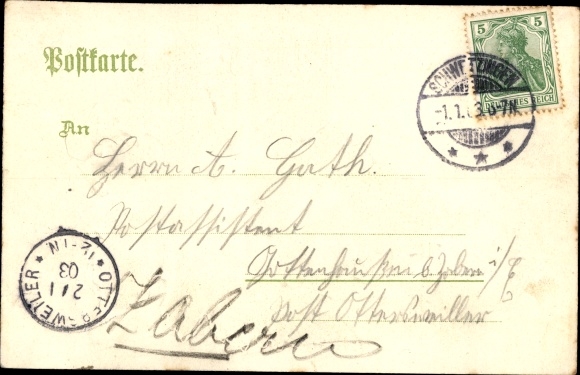 Postkarte.
5 5
DEUTSCHES REICH
SCHWETZINGEN
-1.1.03. 6-7N.
An
Herrn A. Gath.
Postassistent
Gottenhausen b. Zabern i/E
Post Ottersweiler
Zabern
OTTERSWEILER
2/1
03
12-1N